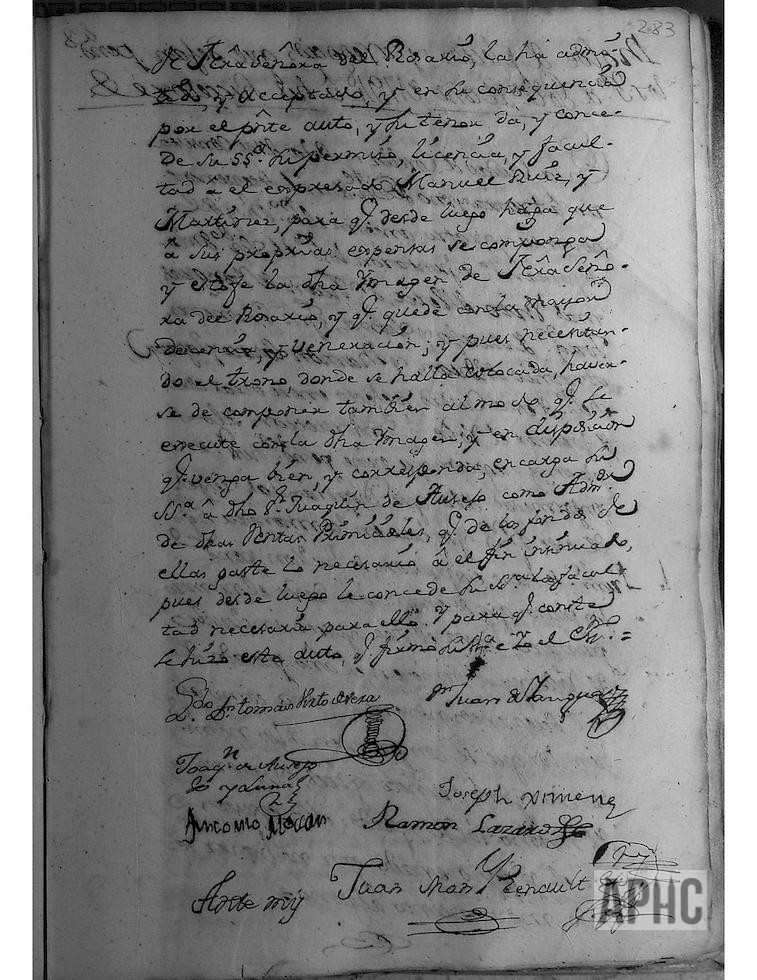 283
de Nrâ Señora del Rosario, la há admi-
tido, y acceptado, y en su consequencia
por el pñte auto, y su tenor da, y conce-
de su SSª. su permiso, licencia, y facul-
tad â el expresado Manuel Ruiz, y
Martinez, para q.e desde luego haga que
â sus propias expensas se componga
y estofe la dha Ymagen de Nrâ Seño-
ra del Rosario, y q.e quede con la mayor
decencia, y veneracion; y pues necesitan-
do el trono, donde se halla colocada, haver-
se de componer tambien al modo q.e se
execute con la dha Ymagen, y en disposicion
q.e venga bien, y corresponda, encarga su
Sª â dho Dn Juaquin de Ausejo como Adm.or
de dhas Rentas Primiciales, q.e de los fondos de
ellas gaste lo necesario â el fin insinuado,
pues desde luego le concede su Sª la facul-
tad necesaria para ello. Y para q.e conste
se hizo este auto, q.e firmó su Sª e Yo el =
Dn Tomás Dn Juan
Joaq.n de Ausejo
y Luna
Joseph Ximenez
Antonio Ramon Lazaro
Ante my Juan Renault
APHC